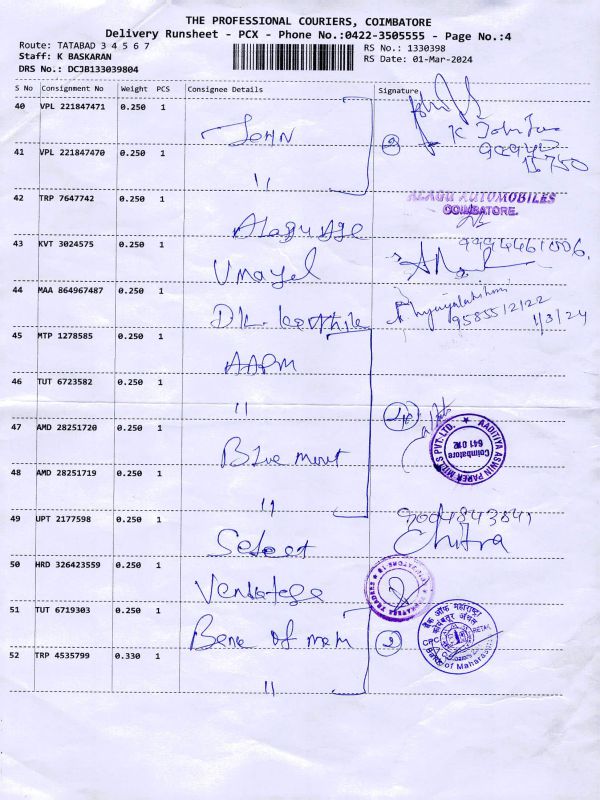 THE PROFESSIONAL COURIERS, COIMBATORE
Delivery Runsheet - PCX - Phone No.:0422-3505555 - Page No.:4
Route: TATABAD 3 4 5 6 7
RS No.: 1330398
Staff: K BASKARAN
RS Date: 01-Mar-2024
DRS No.: DCJB133039804
S No Consignment No Weight PCS Consignee Details Signature
40 VPL 221847471 0.250 1
JOHN
K John
41 VPL 221847470 0.250 1
2
15750
"
42 TRP 7647742 0.250 1
ALAGU AUTOMOBILES
COIMBATORE.
Alagu
43 KVT 3024575 0.250 1
9994461006.
Umayal
44 MAA 864967487 0.250 1
DR.
9585512122
1/3/24
45 MTP 1278585 0.250 1
AAPM
46 TUT 6723582 0.250 1
"
4
47 AMD 28251720 0.250 1
AADITIYA ASWIN PAPER MILLS PVT. LTD.
Coimbatore
641 012
Blue mount
48 AMD 28251719 0.250 1
"
49 UPT 2177598 0.250 1
9004843541
Select
Chitra
50 HRD 326423559 0.250 1
51 TUT 6719303 0.250 1
बैंक ऑफ महाराष्ट्र
कोयंबतूर अंचल
Bank of Mah
2
Bank of Maharashtra
52 TRP 4535799 0.330 1
"